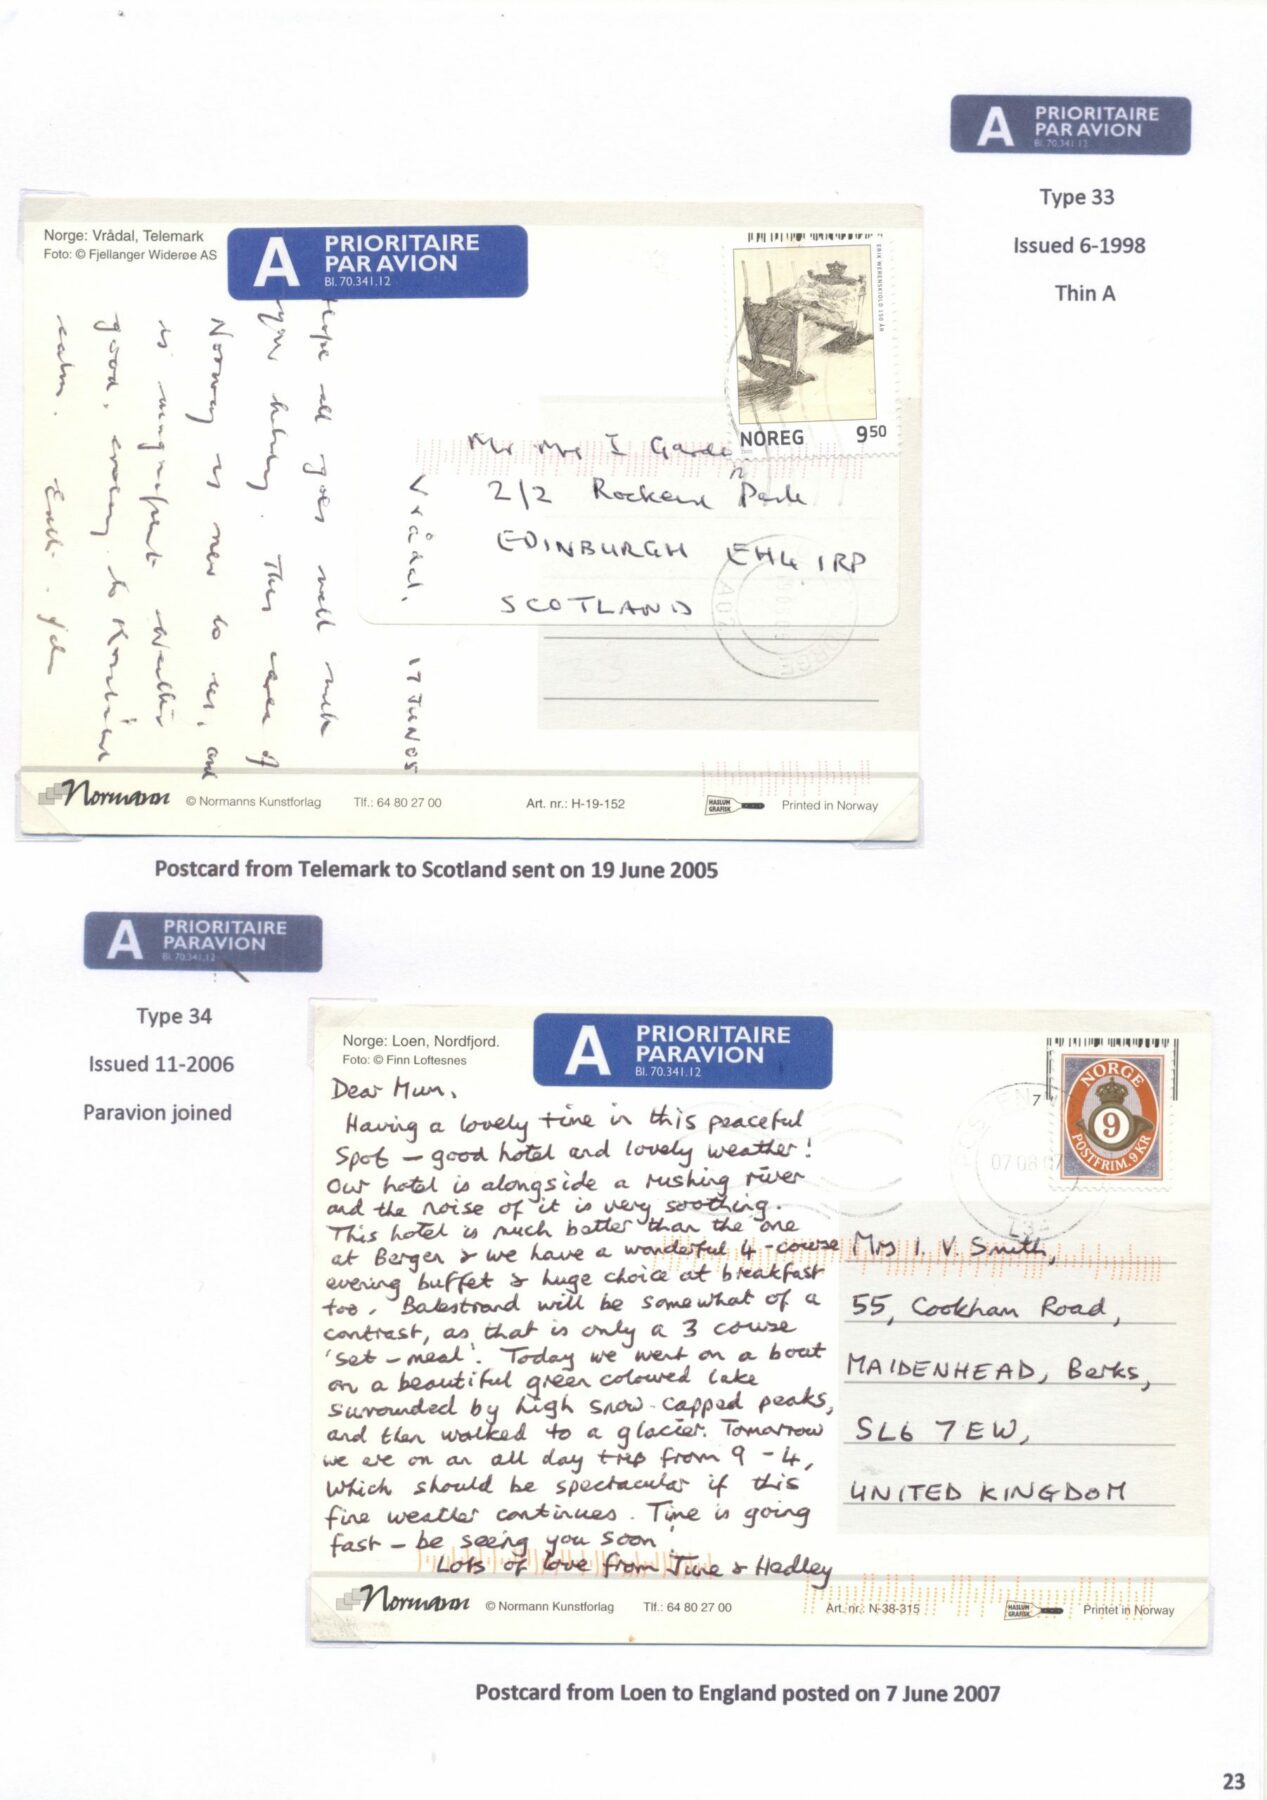 A PRIORITAIRE
PAR AVION
Bl. 70.341.12
Type 33
Issued 6-1998
Thin A
Norge: Vrådal, Telemark
Foto: © Fjellanger Widerøe AS
A PRIORITAIRE
PAR AVION
Bl. 70.341.12
ERIK WERENSKIOLD 150 ÅR
NOREG 9⁵⁰
Vrådal. 17 JUN 05
Hope all goes well with
your hobby. This area of
Norway is new to us, and
is magnificent weather
good, evening to
calm.
Mr Mrs I Garden
2/2 Rockend Park
EDINBURGH EH4 1RP
SCOTLAND
NORGE
Normann © Normanns Kunstforlag Tlf.: 64 80 27 00 Art. nr.: H-19-152 HASLUM GRAFISK Printed in Norway
Postcard from Telemark to Scotland sent on 19 June 2005
A PRIORITAIRE
PARAVION
Bl. 70.341.12
Type 34
Issued 11-2006
Paravion joined
Norge: Loen, Nordfjord.
Foto: © Finn Loftesnes
A PRIORITAIRE
PARAVION
Bl. 70.341.12
7
NORGE
9
POSTFRIM. 9 KR
07 08 07
Dear Mum,
Having a lovely time in this peaceful
Spot – good hotel and lovely weather!
Our hotel is alongside a rushing river
and the noise of it is very soothing.
This hotel is much better than the one
at Bergen & we have a wonderful 4-course
evening buffet & huge choice at breakfast
too. Balestrand will be somewhat of a
contrast, as that is only a 3 course
'set-meal'. Today we went on a boat
on a beautiful green coloured lake
surrounded by high snow-capped peaks,
and then walked to a glacier. Tomorrow
we are on an all day trip from 9-4,
which should be spectacular if this
fine weather continues. Time is going
fast – be seeing you soon!
Lots of love from June & Hedley
Mrs I. V. Smith,
55, Cookham Road,
MAIDENHEAD, Berks,
SL6 7EW,
UNITED KINGDOM
Normann © Normann Kunstforlag Tlf.: 64 80 27 00 Art. nr.: N-38-315 HASLUM GRAFISK Printet in Norway
Postcard from Loen to England posted on 7 June 2007
23